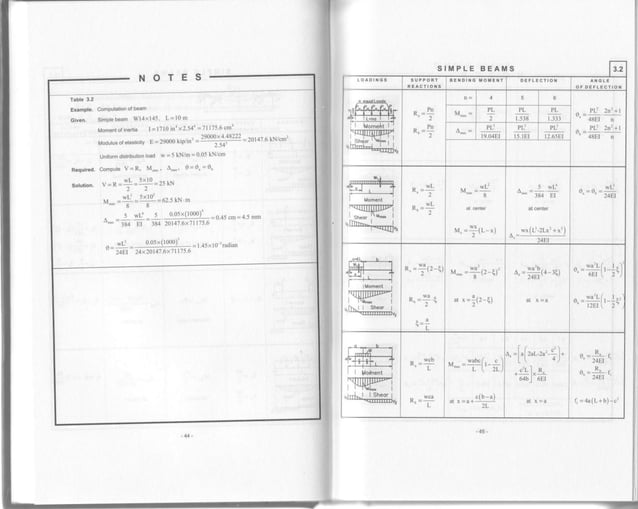 NOTES
Table 3.2
Example. Computation of beam
Given. Simple beam W14×145, L = 10 m
Moment of inertia I = 1710 in⁴ × 2.54⁴ = 71175.6 cm⁴
Modulus of elasticity E = 29000 kip/in² = 29000×4.48222 / 2.54² = 20147.6 kN/cm²
Uniform distribution load w = 5 kN/m = 0.05 kN/cm
Required. Compute V = R, Mmax, Δmax, θ = θa = θb
Solution. V = R = wL/2 = 5×10/2 = 25 kN
Mmax = wL²/8 = 5×10²/8 = 62.5 kN·m
Δmax = 5/384 wL⁴/EI = 5/384 0.05×(1000)⁴ / 20147.6×71175.6 = 0.45 cm = 4.5 mm
θ = wL³/24EI = 0.05×(1000)³ / 24×20147.6×71175.6 = 1.45×10⁻³ radian
- 44 -
SIMPLE BEAMS 3.2
LOADINGS SUPPORT REACTIONS BENDING MOMENT DEFLECTION ANGLE OF DEFLECTION
n equal Loads
Moment
Shear
Ra = Pn/2
Rb = Pn/2
n = 4 5 6
Mmax = PL/2 PL/1.538 PL/1.333
Δmax = PL³/19.04EI PL³/15.1EI PL³/12.65EI
θa = PL²/48EI 2n²+1/n
θb = PL²/48EI 2n²+1/n
Moment
Shear
Ra = wL/2
Rb = wL/2
Mmax = wL²/8
at center
Mx = wx/2 (L−x)
Δmax = 5/384 wL⁴/EI
at center
Δx = wx(L³−2Lx²+x³)/24EI
θa = θb = wL³/24EI
Moment
Shear
Ra = wa/2 (2−ξ)
Rb = wa/2 ξ
ξ = a/L
Mmax = wa²/8 (2−ξ)²
at x = a/2 (2−ξ)
Δx = wa³b/24EI (4−3ξ)
at x = a
θa = wa²L/6EI (1−½ξ)²
θb = wa²L/12EI (1−½ξ²)
Moment
Shear
Ra = wcb/L
Rb = wca/L
Mmax = wabc/L (1−c/2L)
at x = a + c(b−a)/2L
at x = a
θa = Ra/24EI f₁
fi = 4a(L+b)−c²